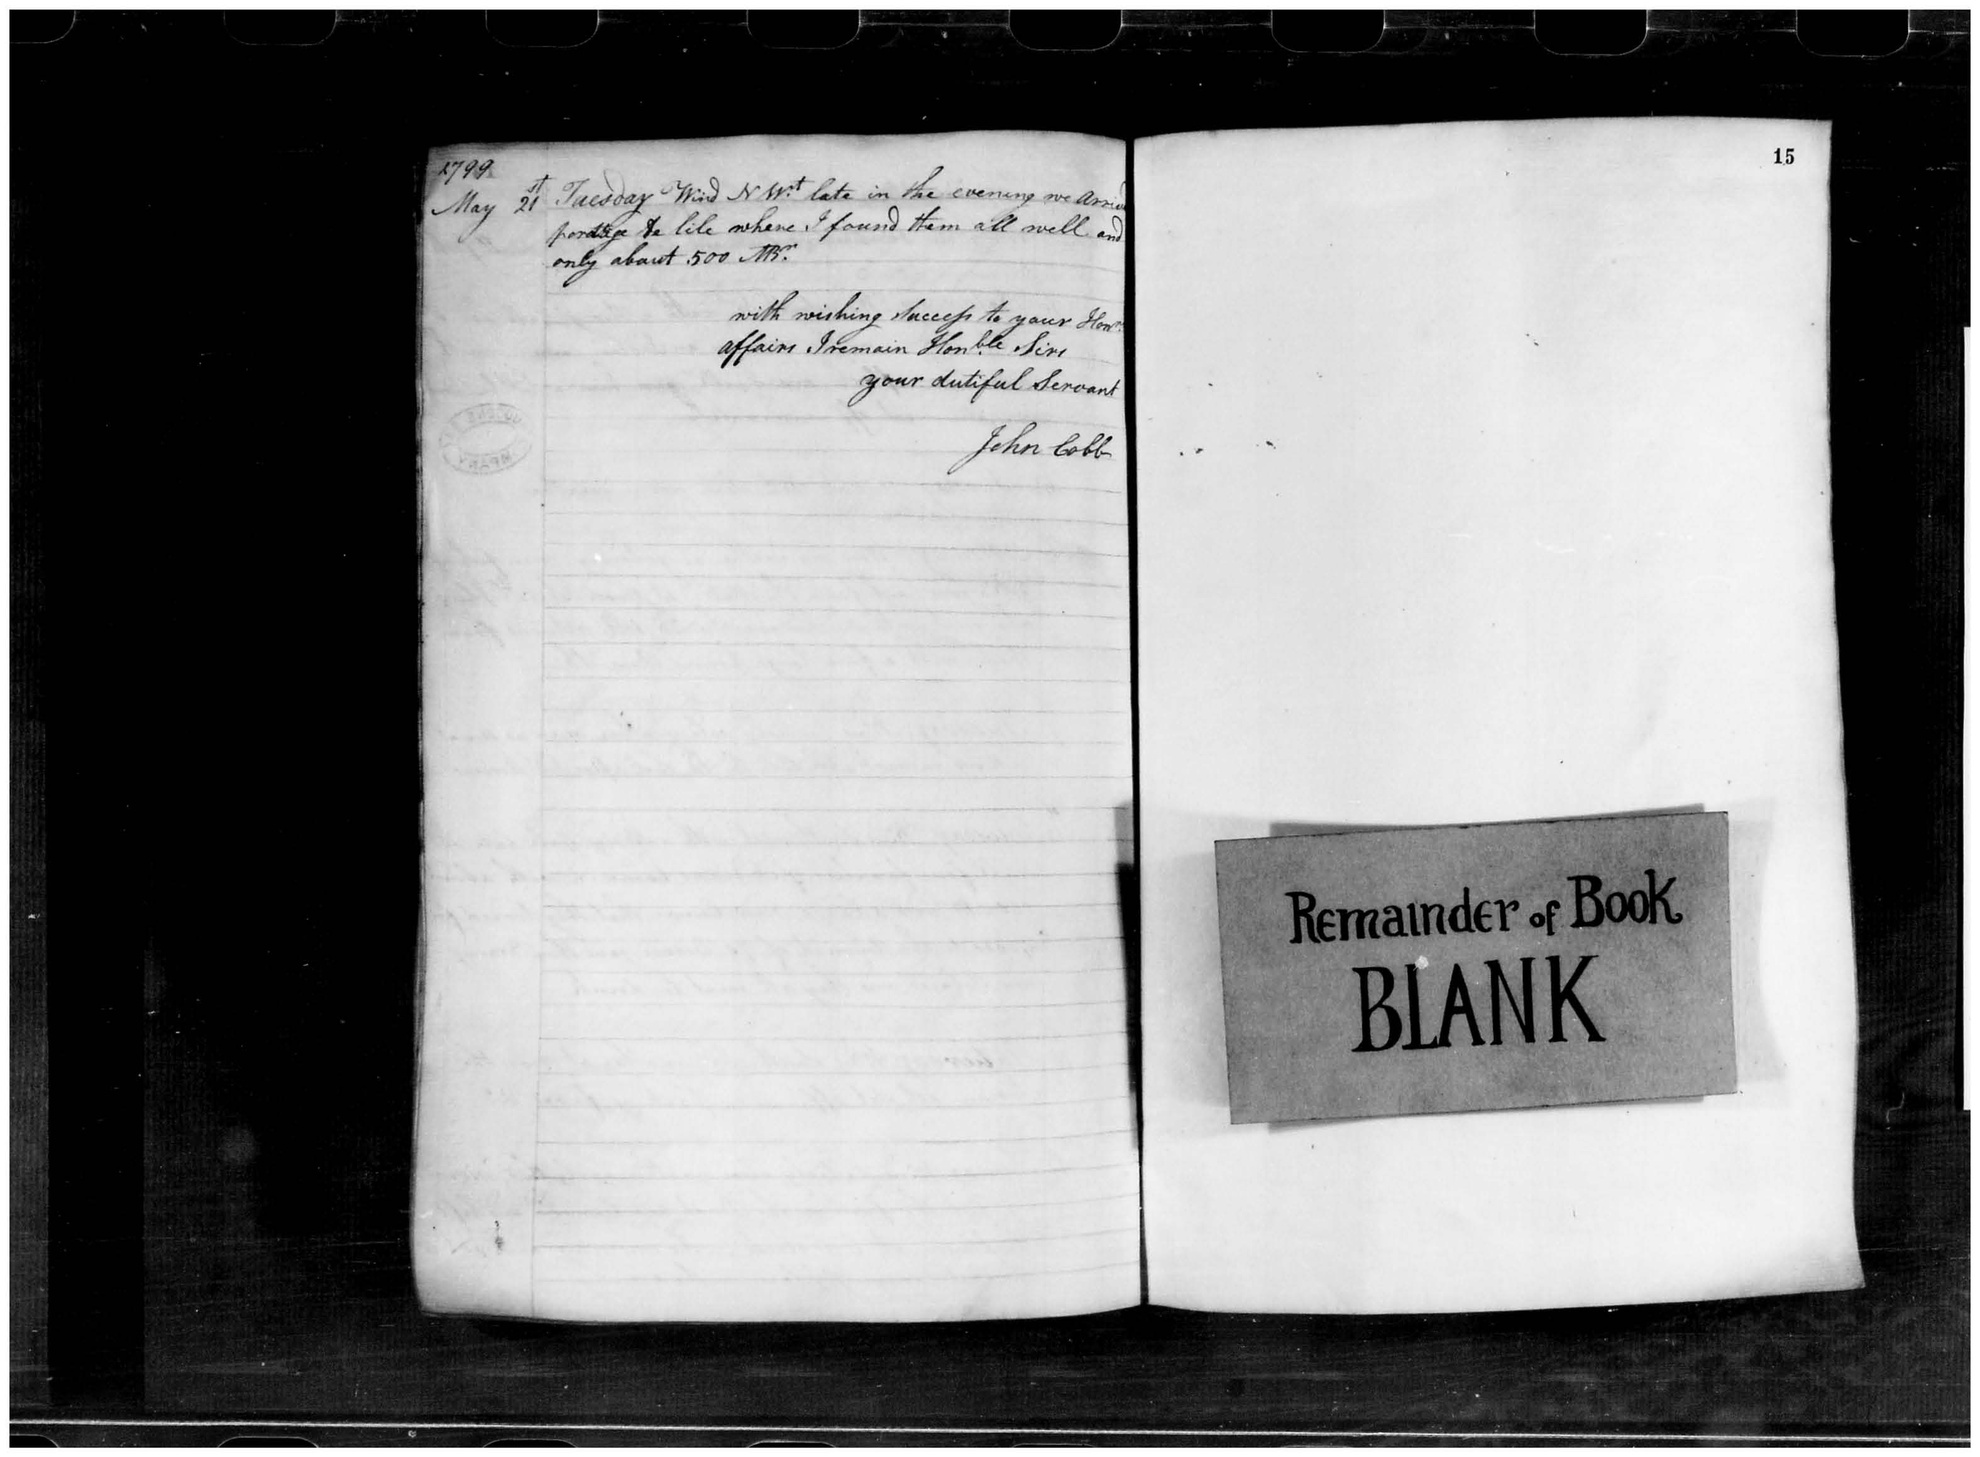 1799
May 21st Tuesday Wind N Wst. late in the evening we Arrived
portage de lile where I found them all well and
only about 500 MBr.
with wishing Success to your Honrs
affairs I remain Honble Sirs
your dutiful Servant
John Cobb
15
Remainder of Book
BLANK